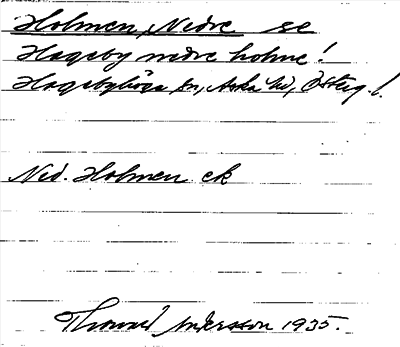 Holmen, Nedre se
Hageby nedre holme!
Hagebyhöga sn, Aska hd, Österg. l.
Ned. Holmen ek
Thorvald Andersson 1935.